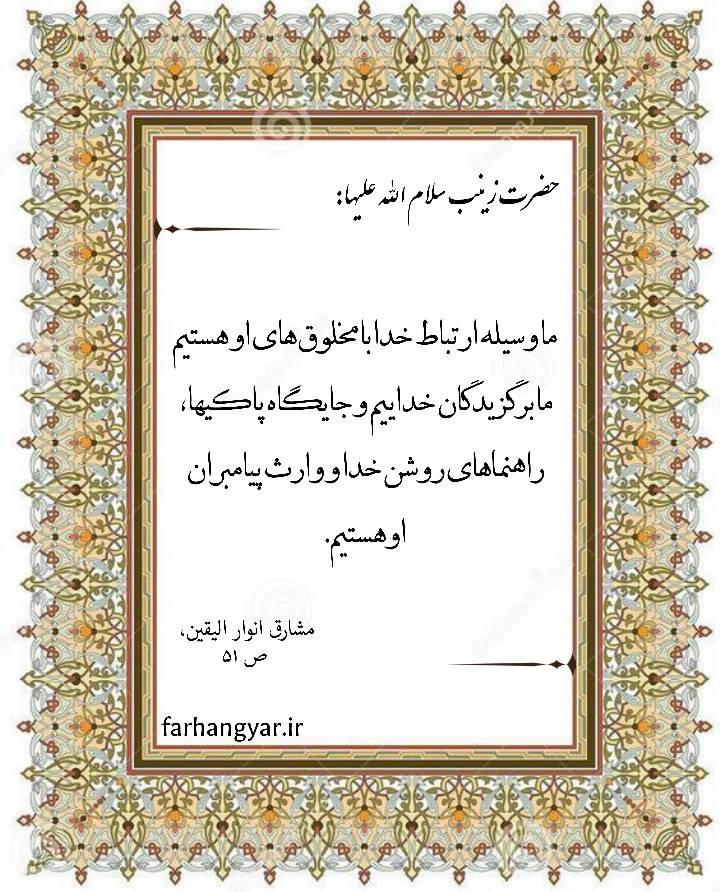 حضرت زینب سلام الله علیها:
ما وسیله ارتباط خدا با مخلوق های او هستیم
ما برگزیدگان خداییم و جایگاه پاکیها،
راهنماهای روشن خدا و وارث پیامبران
او هستیم.
مشارق انوار الیقین،
ص ۵۱
farhangyar.ir